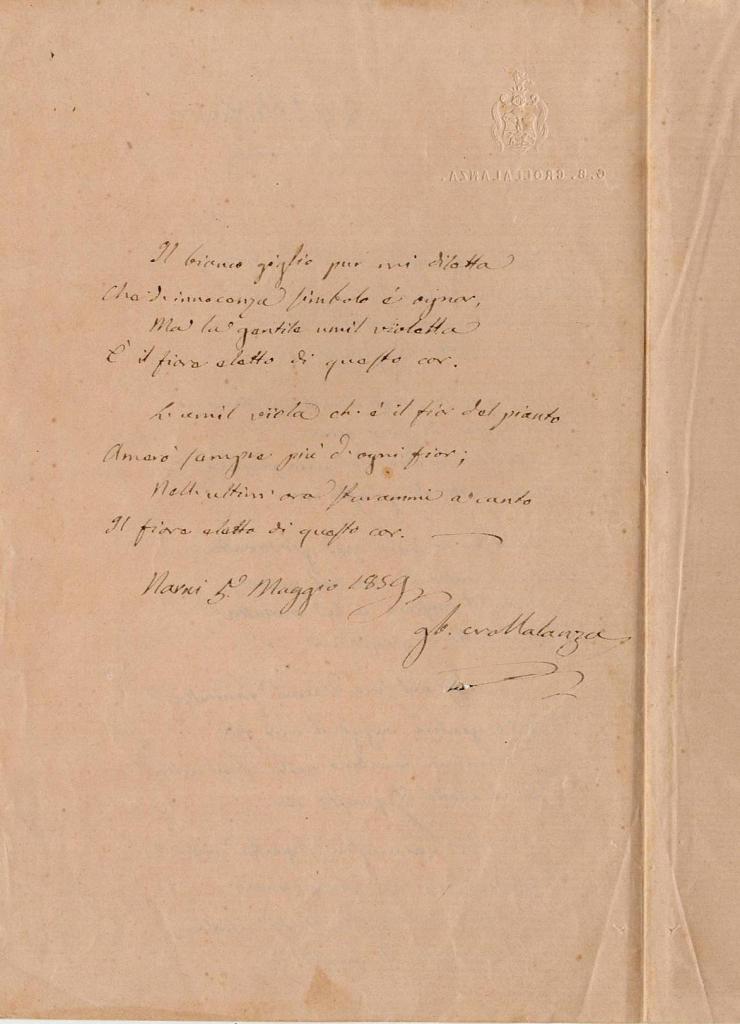 G. B. CROLLALANZA.
Il bianco giglio pur mi diletta
Che d'innocenza simbolo è ognor,
Ma la gentile umil violetta
È il fiore eletto di questo cor.
L'umil viola ch'è il fior del pianto
Amerò sempre più d'ogni fior;
Nell'ultim'ora starammi a canto
Il fiore eletto di questo cor.
Narni 5 Maggio 1859
gb. crollalanza